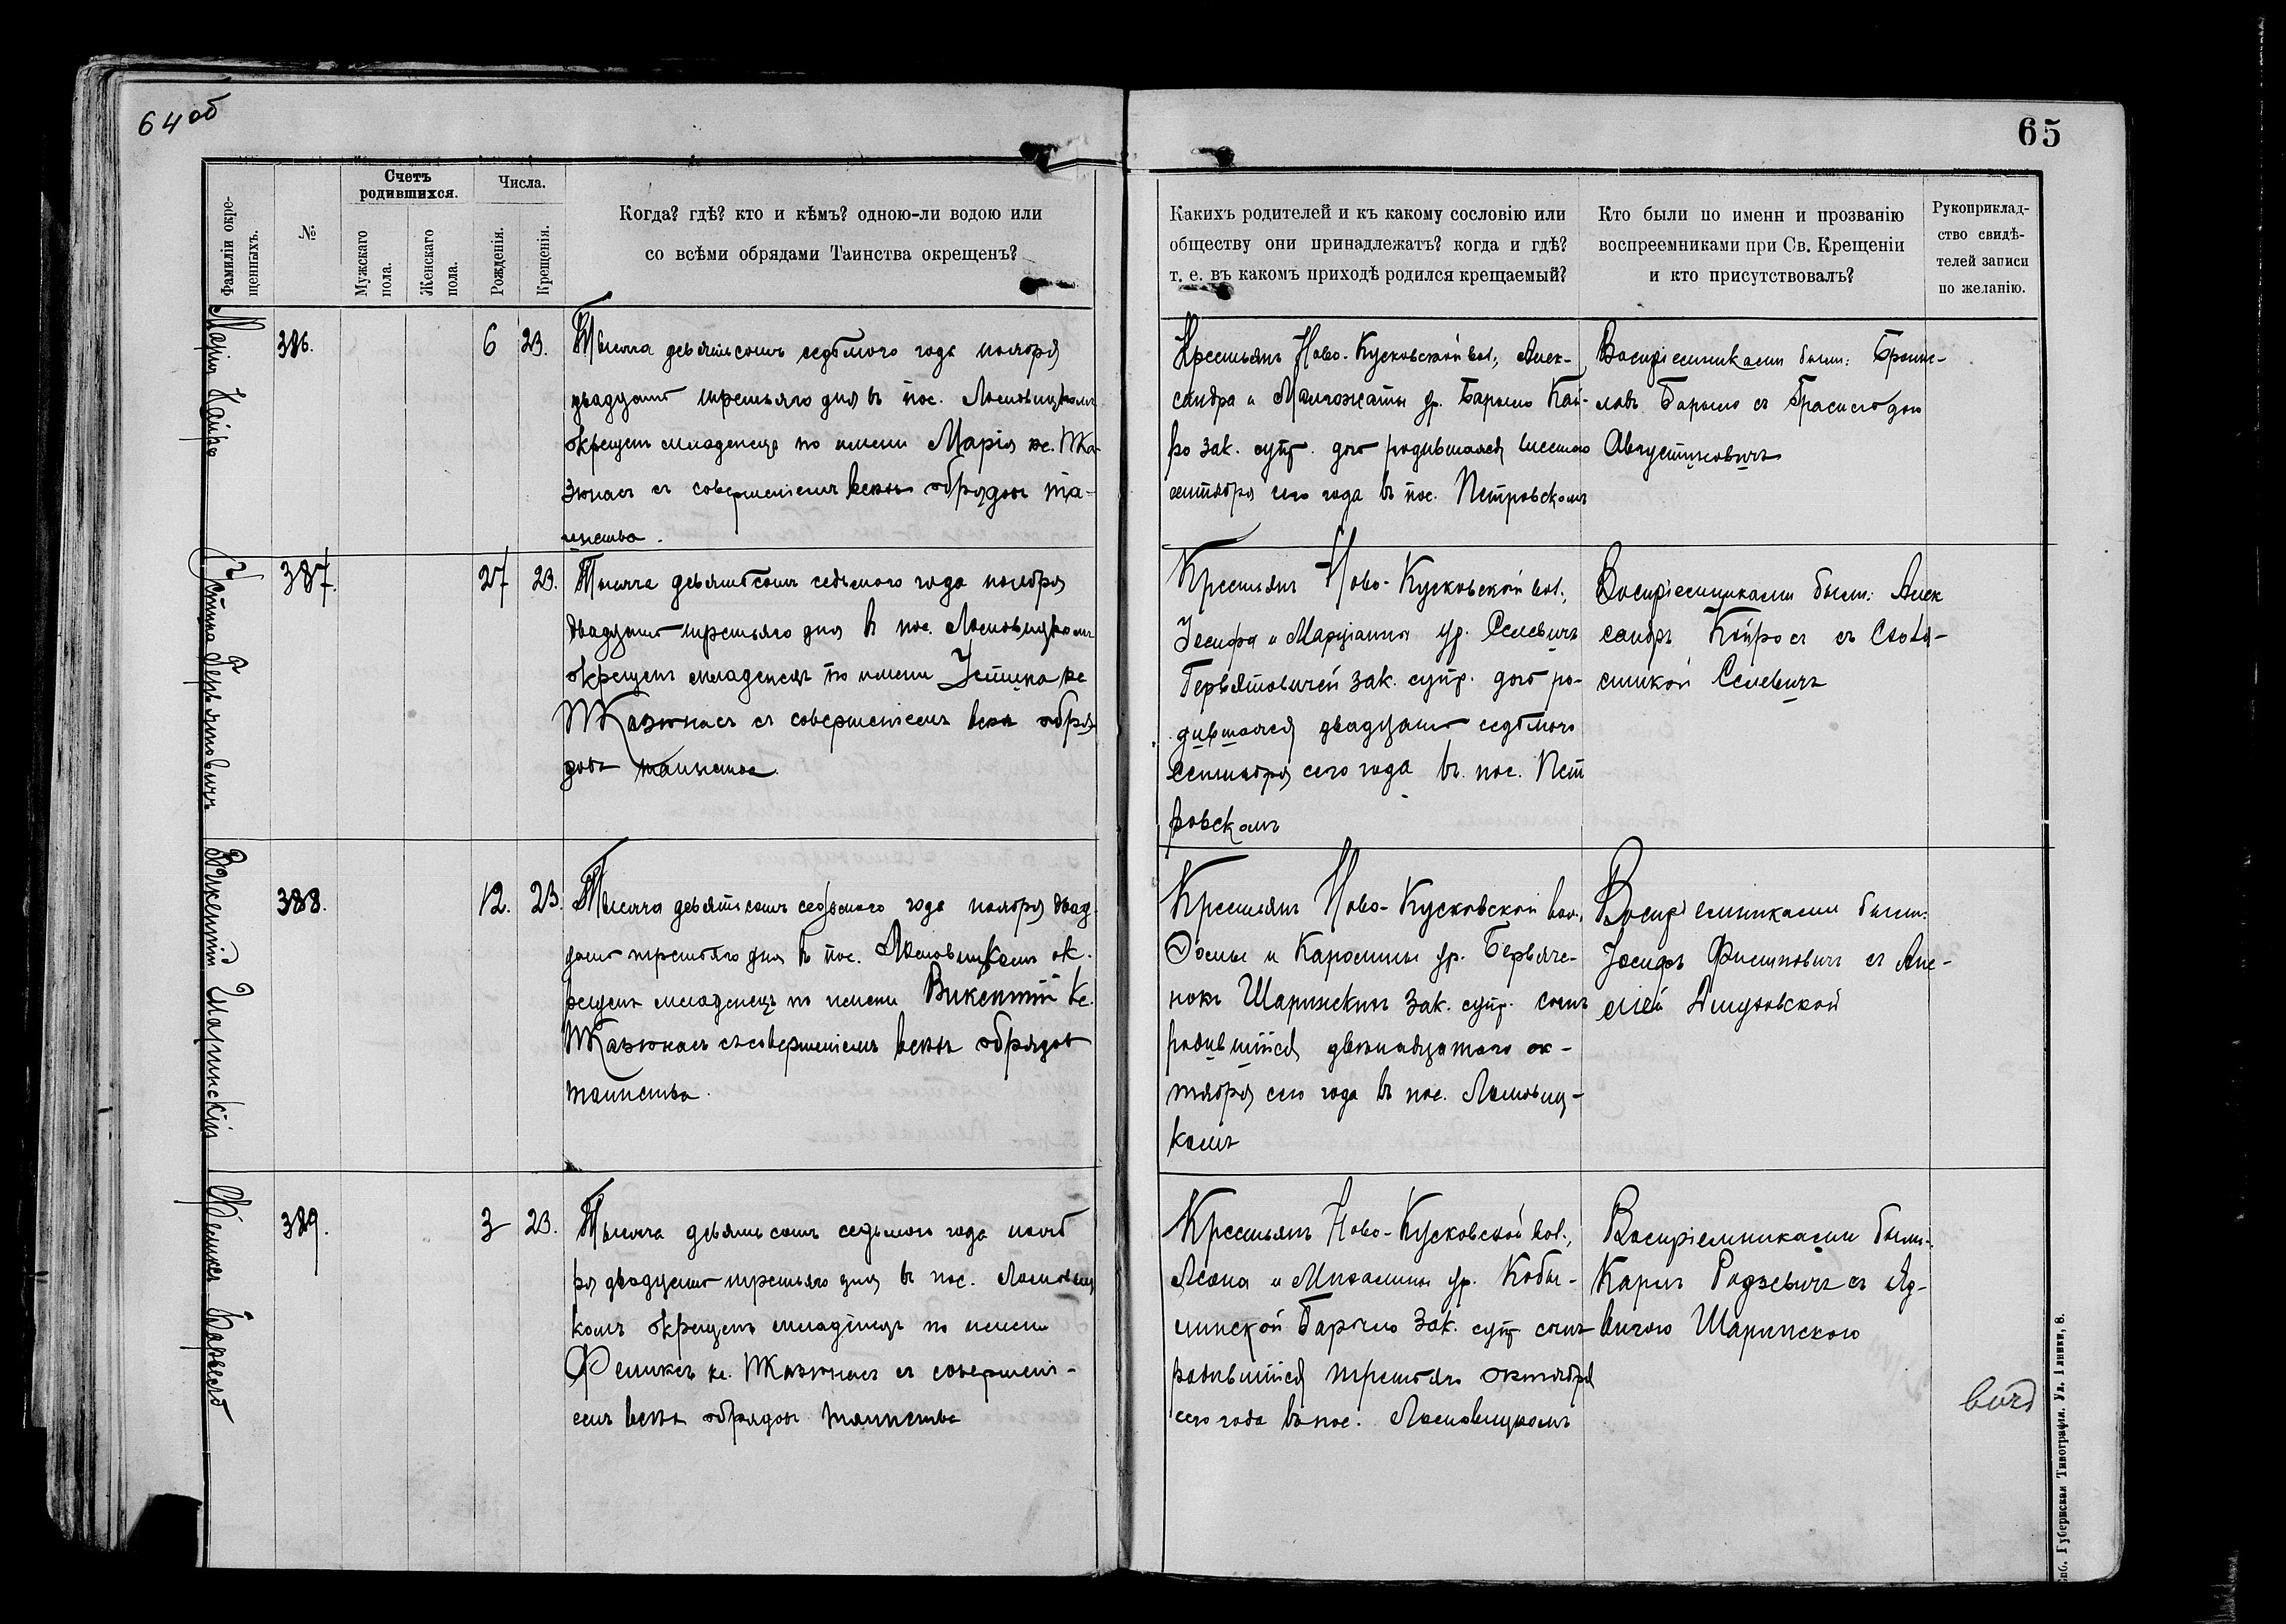 64 об
65
Фамиліи окре-
щенныхъ.
№
Счетъ
родившихся.
Мужскаго
пола.
Женскаго
пола.
Числа.
Рожденія.
Крещенія.
Когда? гдѣ? кто и кѣмъ? одною-ли водою или
со всѣми обрядами Таинства окрещенъ?
Какихъ родителей и къ какому сословію или
обществу они принадлежатъ? когда и гдѣ?
т. е. въ какомъ приходѣ родился крещаемый?
Кто были по имени и прозванію
воспреемниками при Св. Крещеніи
и кто присутствовалъ?
Рукоприклад-
ство свидѣ-
телей записи
по желанію.
Марія Кайро
386.
6
23.
Тысяча девятьсотъ седьмого года ноября
двадцать третьяго дня въ пос. Ломовицкомъ
окрещенъ младенецъ по имени Марія кс. Жа-
зюнасъ съ совершеніемъ всѣхъ обрядовъ та-
инства.
Крестьянъ Ново-Кусковской вол., Алек-
сандра и Малгожаты ур. Барыло Кай-
ро зак. супр. дочь родившаяся шестого
сентября сего года въ пос. Петровскомъ
Воспріемниками были: Бронис-
лавъ Барыло съ
Августиновичъ
Устина Гервятовичъ
387.
27
23.
Тысяча девятьсотъ седьмого года ноября
двадцать третьяго дня въ пос. Ломовицкомъ
окрещенъ младенецъ по имени Устина кс
Жазюнасъ съ совершеніемъ всѣхъ обря-
довъ таинства.
Крестьянъ Ново-Кусковской вол.,
Іосифа и Марціанны ур. Селевичъ
Гервятовичей зак. супр. дочь ро-
дившаяся двадцать седьмого
сентября сего года въ пос. Пет
ровскомъ
Воспріемниками были: Алек
сандръ съ
Селевичъ
Викентій Шаринскій
388.
12.
23.
Тысяча девятьсотъ седьмого года ноября двад-
цать третьяго дня въ пос. Ломовицкомъ ок-
рещенъ младенецъ по имени Викентій кс.
Жазюнасъ съ совершеніемъ всѣхъ обрядовъ
таинства.
Крестьянъ Ново-Кусковской вол.,
и Каролины ур. Бервяче-
нокъ Шаринскихъ зак. супр. сынъ
родившійся двѣнадцатаго ок-
тября сего года въ пос. Ломовиц-
комъ
Воспріемниками были:
Іосифъ Филиповичъ съ
Феликсъ Барыло
389.
3
23.
Тысяча девятьсотъ седьмого года нояб
ря двадцать третьяго дня въ пос. Ломовиц
комъ окрещенъ младенецъ по имени
Феликсъ кс. Жазюнасъ съ совершені-
емъ всѣхъ обрядовъ таинства
Крестьянъ Ново-Кусковской вол.,
Леона и Михалины ур. Кобы-
линской Барыло зак. супр. сынъ
родившійся третьяго октября
сего года въ пос. Ломовицкомъ
Воспріемниками были:
Карлъ Родзевичъ съ Яд-
вигою Шаринскою
Губернская Типографія. Ул. 1 линія, 8.